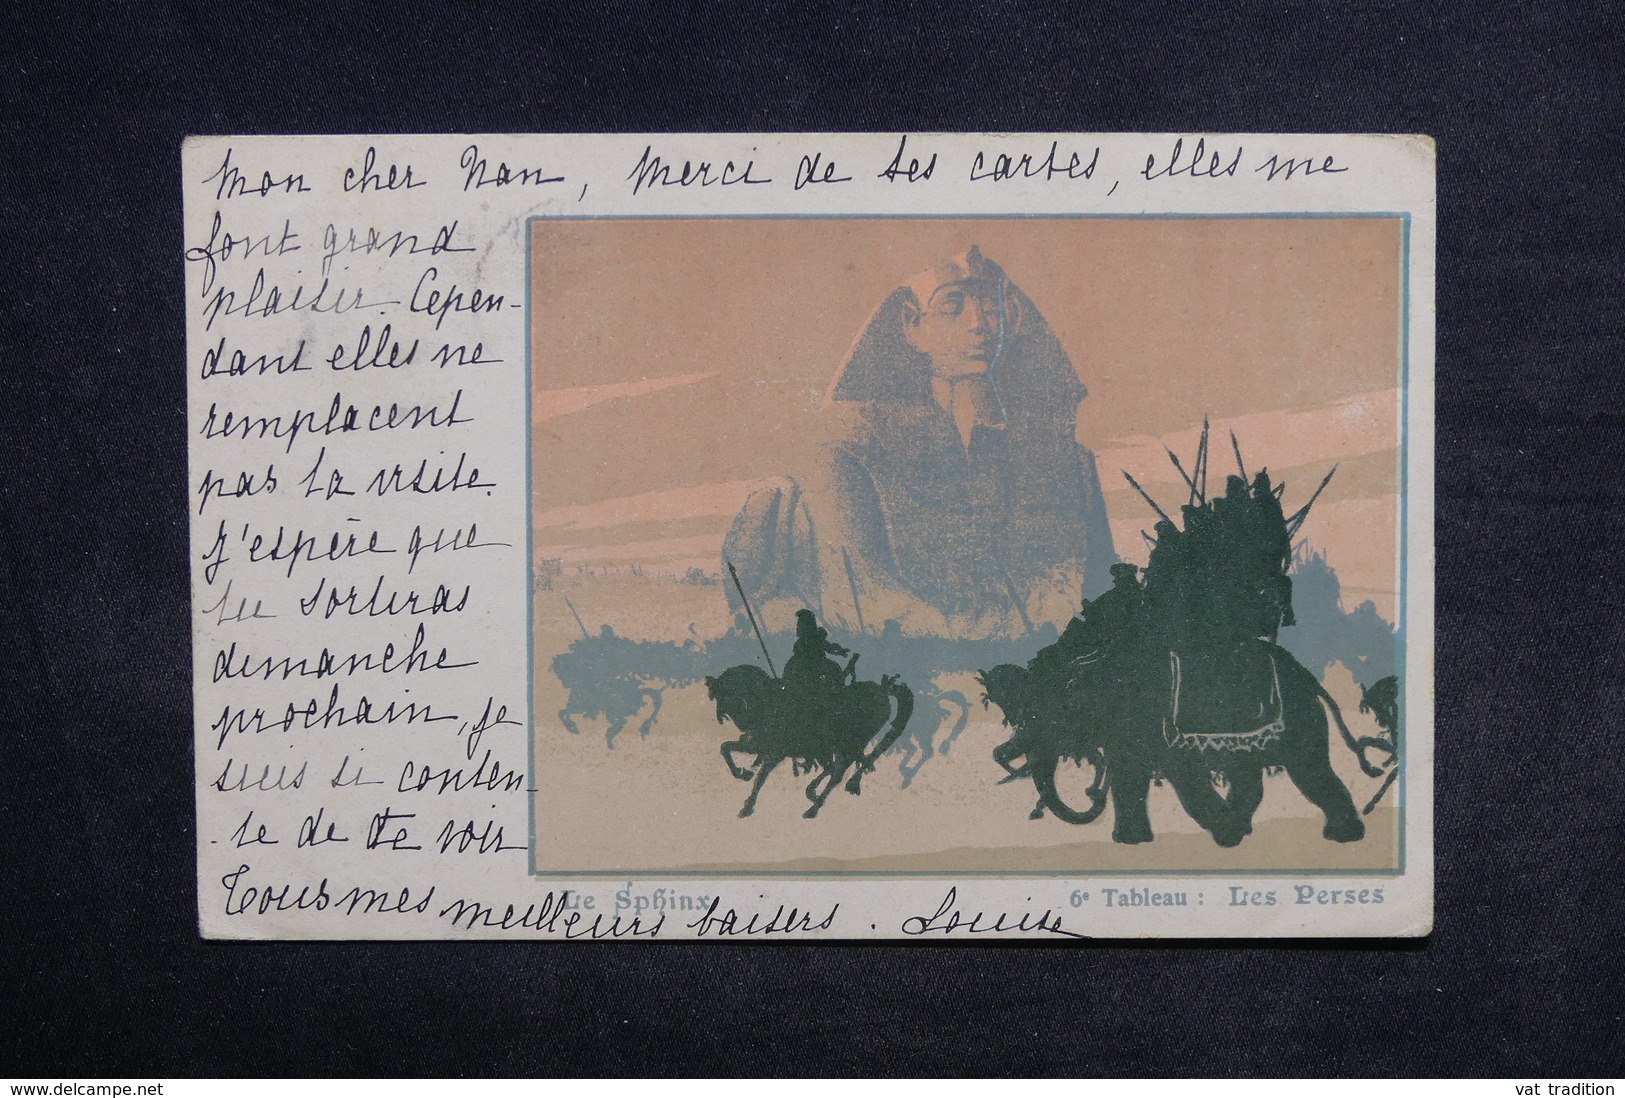 Mon cher Nan, Merci de tes cartes, elles me
font grand
plaisir. Cepen-
dant elles ne
remplacent
pas ta visite.
J'espère que
tu sortiras
dimanche
prochain, je
suis si conten-
-te de te voir
Tous mes meilleurs baisers. Louise
Le Sphinx
6e Tableau : Les Perses
www.delcampe.net
vat tradition